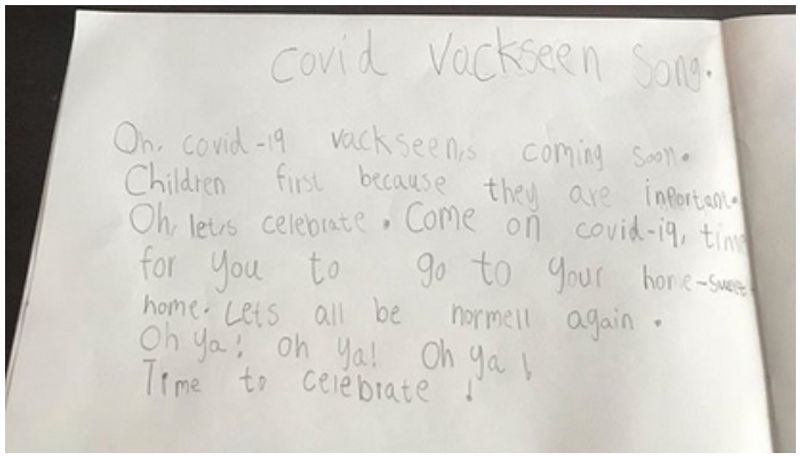 Covid Vackseen Song.
Oh, covid-19 vackseen,s coming soon.
Children first because they are inportant.
Oh, let,s celebrate. Come on covid-19, time
for you to go to your home-sweet-
home. Lets all be normell again.
Oh ya! Oh ya! Oh ya!
Time to celebrate!